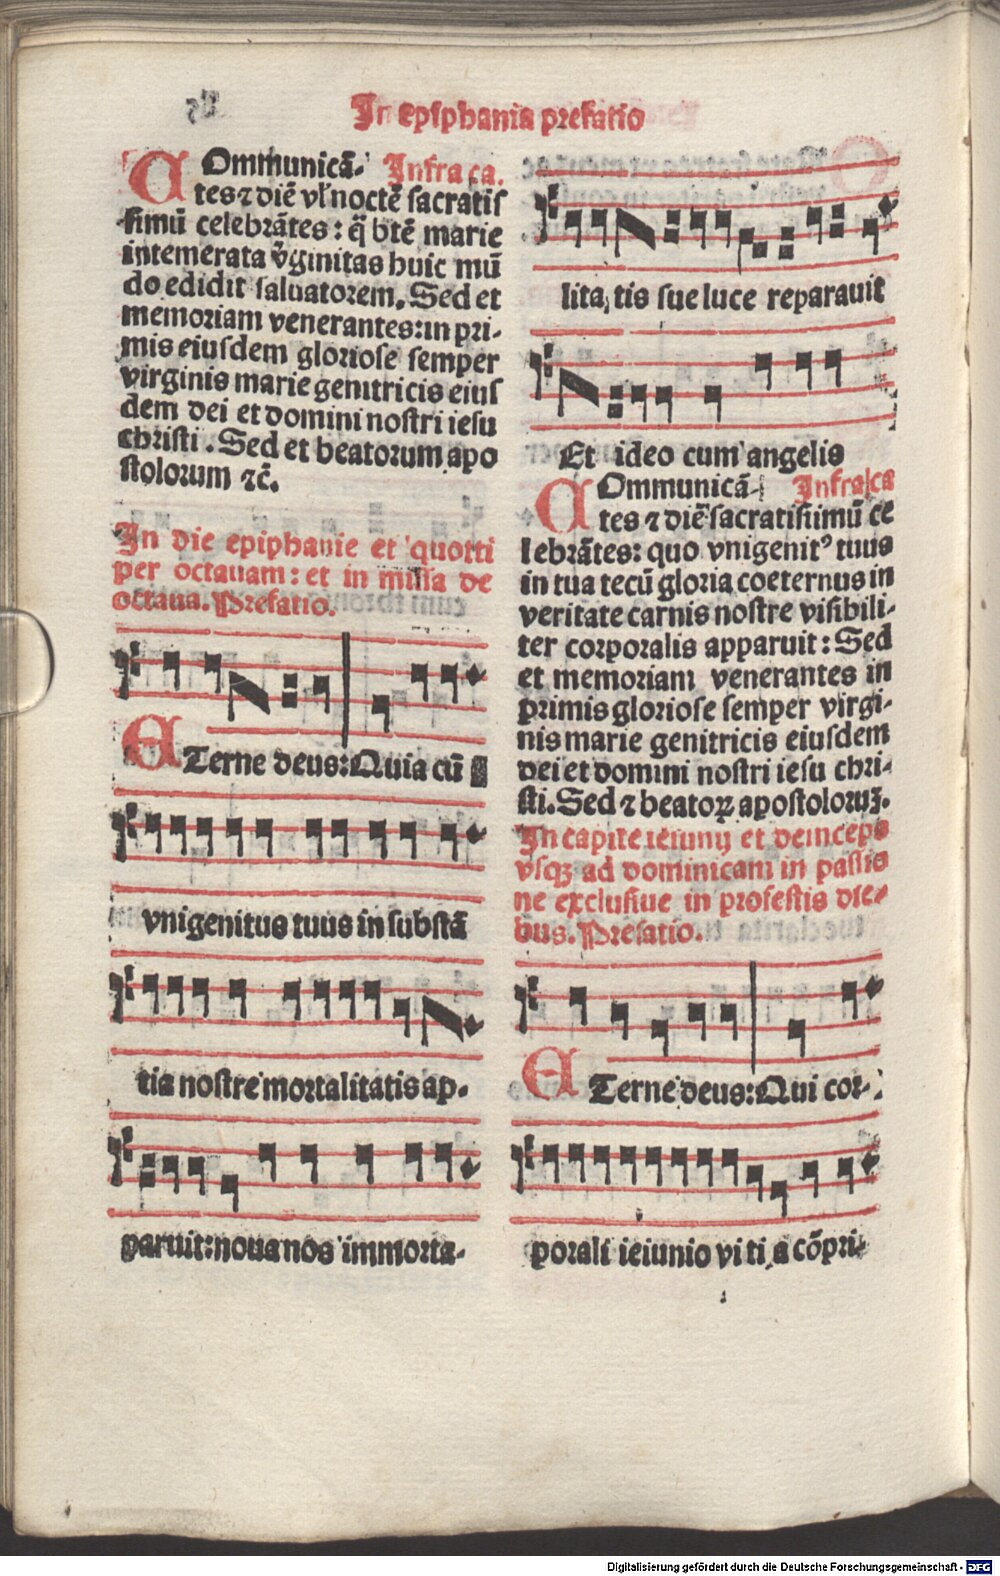 In epiphania prefatio
COmmunicã- Infra ca.
tes ⁊ diẽ vł noctẽ sacratis
simũ celebrãtes: q̃ btẽ marie
intemerata v̄ginitas huic mũ
do edidit saluatorem. Sed et
memoriam venerantes: in pri-
mis eiusdem gloriose semper
virginis marie genitricis eius
dem dei et domini nostri iesu
christi. Sed et beatorum apo
stolorum ⁊c̃.
In die epiphanie et quotti
per octauam: et in missa de
octaua. Prefatio.
ETerne deus: Quia cũ
vnigenitus tuus in substã
tia nostre mortalitatis ap-
paruit: noua nos immorta-
lita, tis sue luce reparauit
Et ideo cum angelis
COmmunicã- Infra ca
tes ⁊ diẽ sacratissimũ ce
lebrãtes: quo vnigenitꝰ tuus
in tua tecũ gloria coeternus in
veritate carnis nostre visibili-
ter corporalis apparuit: Sed
et memoriam venerantes in
primis gloriose semper virgi-
nis marie genitricis eiusdem
dei et domini nostri iesu chri-
sti. Sed ⁊ beatoꝝ apostoloruꝫ.
In capite ieiunij et deinceps
vsqꝫ ad dominicam in passio
ne exclusiue in profestis die-
bus. Prefatio.
ETerne deus: Qui cor-
porali ieiunio viti, a cõpri-
Digitalisierung gefördert durch die Deutsche Forschungsgemeinschaft - DFG